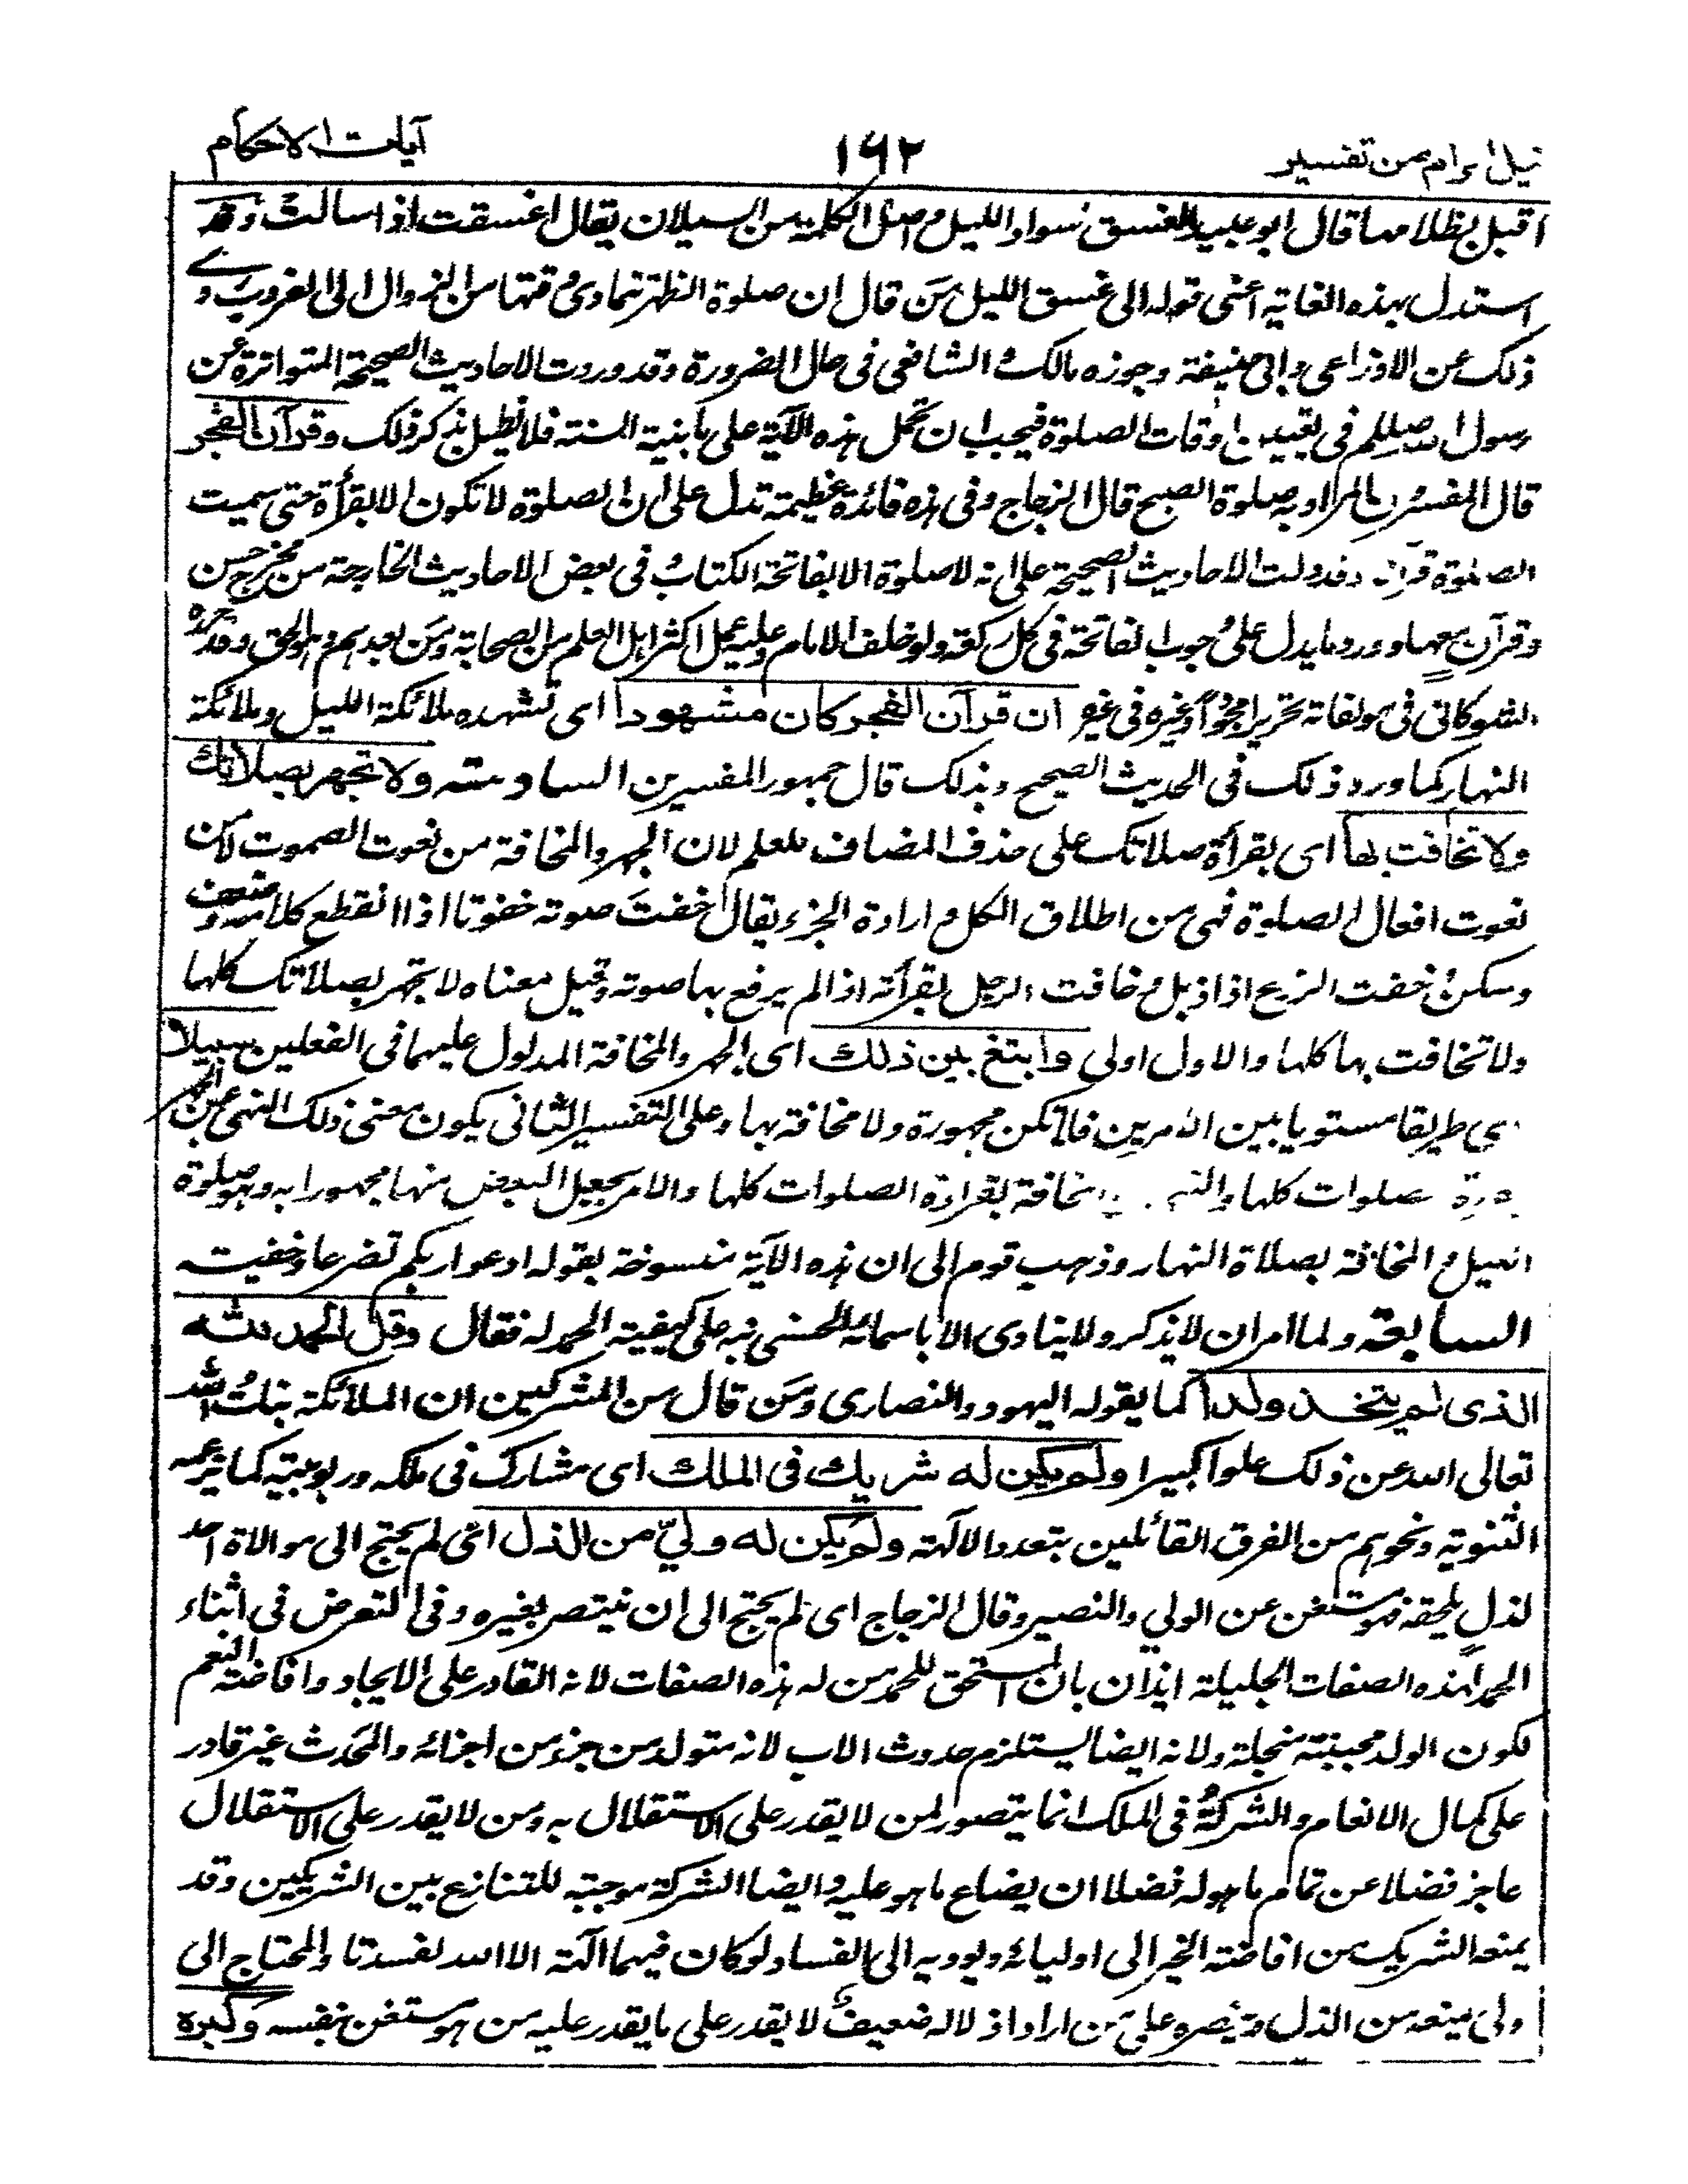 نيل المرام من تفسير ١٦٢ آيات الاحكام
اقبل بظلامها قال ابو عبيد الغسق سواد الليل واصل الكلمة من السيلان يقال اغسقت اذا سالت وقد
استدل بهذه الغاية اعنى قوله الى غسق الليل من قال ان صلوة الظهر يتمادى وقتها من الزوال الى الغروب وروى
ذلك عن الاوزاعى وابى حنيفة وجوزه مالك والشافعى فى حال الضرورة وقد وردت الاحاديث الصحيحة المتواترة عن
رسول الله صللم فى تعيين اوقات الصلوة فيجب ان تحمل هذه الآية على ما بنية السنة فلا نطيل بذكر ذلك وقرآن الفجر
قال المفسرون المراد به صلوة الصبح قال الزجاج وفى هذه فائدة عظيمة تدل على ان الصلوة لا تكون الا بقرأة حتى سميت
الصلوة قرآنا وقد دلت الاحاديث الصحيحة على انه لا صلوة الا بفاتحة الكتاب وفى بعض الاحاديث الخارجة من مخرج حسن
وقرآن معها وورد ما يدل على وجوب الفاتحة فى كل ركعة ولو خلف الامام وعليه عمل اكثر اهل العلم من الصحابة ومن بعدهم وهو الحق وقد حرره
الشوكانى فى مولفاته تحريرا مجودا وغيره فى غيرها ان قرآن الفجر كان مشهودا اى تشهده ملائكة الليل وملائكة
النهار كما ورد ذلك فى الحديث الصحيح وبذلك قال جمهور المفسرين السادسة ولا تجهر بصلاتك
ولا تخافت بها اى بقرأة صلاتك على حذف المضاف للعلم لان الجهر والمخافة من نعوت الصوت لا من
نعوت افعال الصلوة فهى من اطلاق الكل وارادة الجزء يقال خفت صوته خفوتا اذا انقطع كلامه وضعف
وسكن وخفت الزرع اذا ذبل وخافت الرجل بقرأته اذا لم يرفع بها صوته وقيل معناه لا تجهر بصلاتك كلها
ولا تخافت بها كلها والاول اولى وابتغ بين ذلك اى الجهر والمخافة المدلول عليهما فى الفعلين سبيلا
اى طريقا مستويا بين الامرين فلا تكن مجهورة ولا مخافة بها وعلى التفسير الثانى يكون معنى ذلك النهى عن الجهر
صلوات كلها والنهى مخافة بقراءة الصلوات كلها والامر بجعل البعض منها مجهورا به وهو صلوة
الليل والمخافة بصلاة النهار وذهب قوم الى ان هذه الآية منسوخة بقوله ادعوا ربكم تضرعا وخفية
السابعة ولما امر ان لا يذكر ولا ينادى الا باسمائه الحسنى نبه على كيفية الحمد له فقال وقل الحمد لله
الذى لم يتخذ ولدا كما يقوله اليهود والنصارى ومن قال من المشركين ان الملائكة بنات الله
تعالى الله عن ذلك علوا كبيرا ولم يكن له شريك فى الملك اى مشارك فى ملكه وربوبيته كما تزعمه
الثنوية ونحوهم من الفرق القائلين بتعدد الآلهة ولم يكن له ولي من الذل اى لم يحتج الى موالاة احد
لذل يلحقه فهو مستغن عن الولي والنصير وقال الزجاج اى لم يحتج الى ان ينتصر بغيره وفى التعرض فى اثناء
الحمد لهذه الصفات الجليلة ايذان بان المستحق للحمد من له هذه الصفات لانه القادر على الايجاد وافاضة النعم
لكون الولد مجبنة مبخلة ولانه ايضا يستلزم حدوث الاب لانه متولد من جزء من اجزائه والمحدث غير قادر
على كمال الانعام والشركة فى الملك انما يتصور لمن لا يقدر على الاستقلال به ومن لا يقدر على الاستقلال
عاجز فضلا عن تمام ما هو له فضلا ان يضاع ما هو عليه وايضا الشركة موجبة للتنازع بين الشريكين وقد
يمنعه الشريك من افاضة الخير الى اوليائه ويوديه الى الفساد لو كان فيهما آلهة الا الله لفسدتا والمحتاج الى
ولى يمنعه من الذل وينصره على من اراد اذلاله ضعيف لا يقدر على ما يقدر عليه من هو مستغن بنفسه وكبره